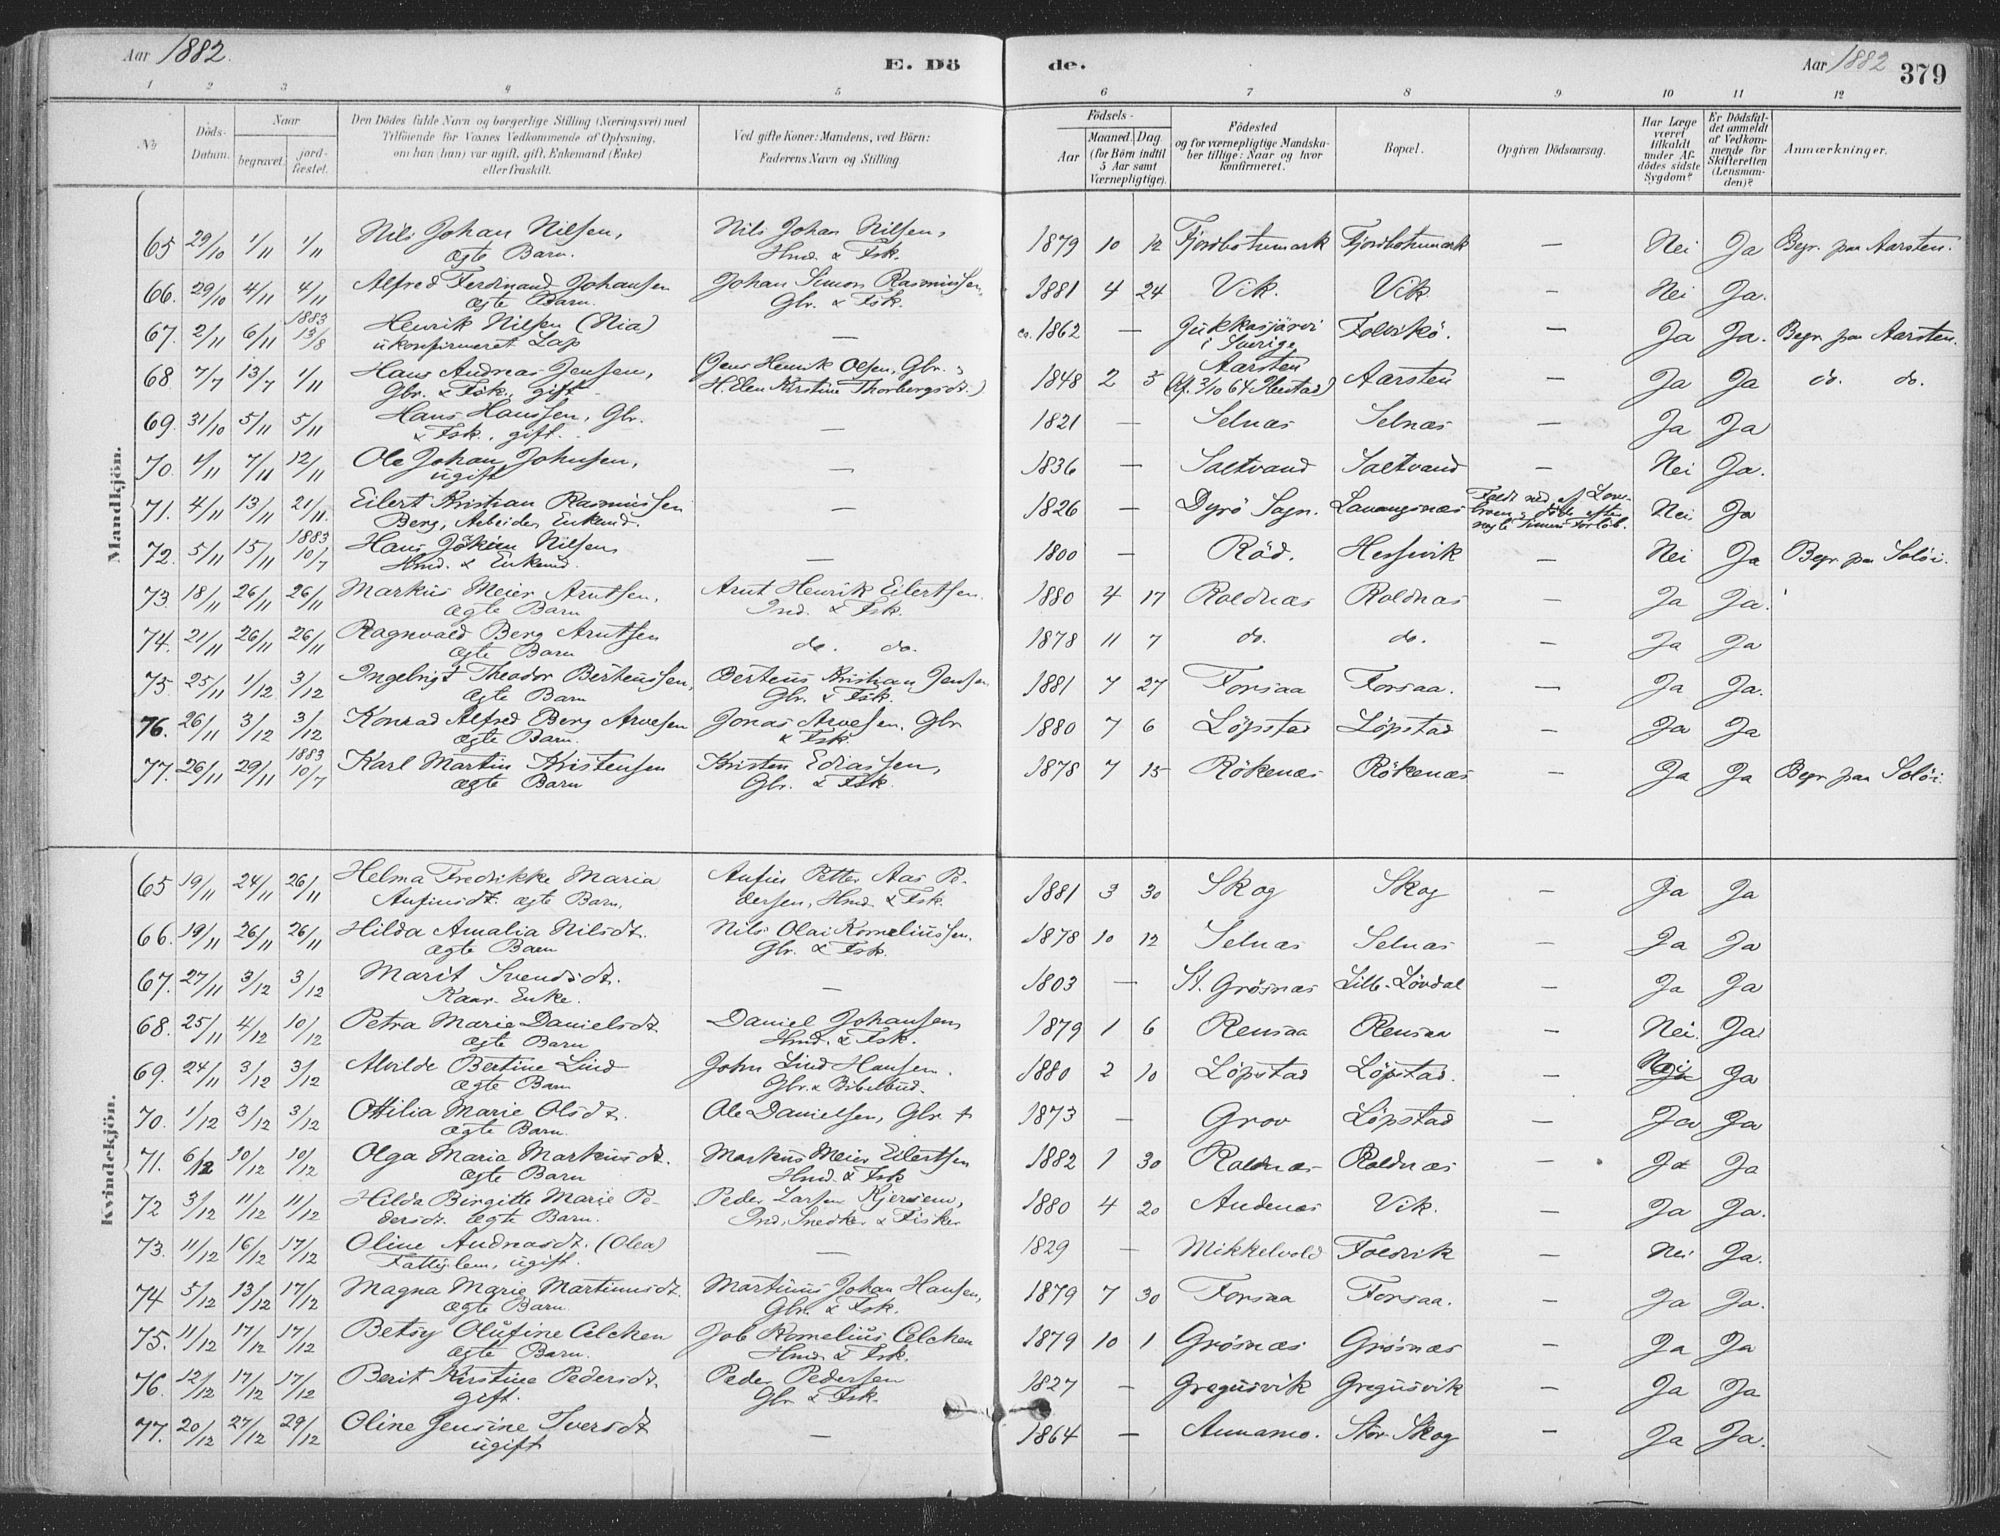 Aar 1882.
E. Dö
de.
Aar 1882
379
1 2 3 4 5 6 7 8 9 10 11 12
No
Döds-Datum.
Naar
begravet.
jord-fæstet.
Den Dödes fulde Navn og borgerlige Stilling (Næringsvei) med
Tilföiende for Voxnes Vedkommende af Oplysning,
om han (hun) var ugift, gift, Enkemand (Enke)
eller fraskilt.
Ved gifte Koner: Mandens, ved Börn:
Faderens Navn og Stilling.
Födsels-
Aar
Maaned. Dag
(for Börn indtil
5 Aar samt
Værnepligtige).
Födested
og for værnepligtige Mandska-
ber tillige: Naar og hvor
konfirmeret.
Bopæl.
Opgiven Dödsaarsag.
Har Læge
været
tilkaldt
under Af-
dödes sidste
Sygdom?
Er Dödsfal-
det anmeldt
af Vedkom-
mende for
Skifteretten
(Lensman-
den)?
Anmærkninger.
Mandkjön.
65 29/10 1/11 1/11 Nils Johan Nilsen, Nils Johan Nilsen, 1879 10 12 Fjordbotnmark Fjordbotnmark — Nei Ja Begr. paa Aarsten.
ægte Barn. Hmd. & Fsk.
66. 29/10 4/11 4/11 Alfred Ferdinand Johansen Johan Simon Rasmussen, 1881 4 24 Vik. Vik — Nei Ja.
ægte Barn. Gbr. & Fsk.
1883
67. 2/11 6/11 13/8 Henrik Nilsen (Nia) — ca. 1862 — Jukkasjärvi Folvikö. — Ja Ja. Begr. paa Aarsten.
ukonfirmeret Lap i Sverige
68. 7/7 13/7 1/11 Hans Andreas Jensen, (Jens Henrik Olsen, Gbr. & 1848 2 5 Aarsten Aarsten — Ja Ja do. do.
Gbr. & Fsk., gift H. Elen Kirstine Thorbergsdt.) (Kf. 3/10 64 Ibestad)
69. 31/10 5/11 5/11 Hans Hanssen, Gbr. — 1821 — Selnæs Selnæs — Ja Ja
& Fsk., gift.
70. 1/11 7/11 12/11 Ole Johan Johnsen, — 1836 — Saltvand Saltvand — Nei Ja.
ugift
71. 4/11 13/11 21/11. Eilert Kristian Rasmussen — 1826 — Dyrö Sogn. Lavangsnæs Faldt ned af Love-
Berg, Arbeider, Enkemd. broen & döde efter Nei Ja
nogle Timers Forlöb.
1883
72. 5/11 15/11 10/7 Hans Jökim Nilsen, — 1800 — Röd. Hessevik — Nei Ja Begr. paa Soløi.
Hmd. & Enkemd.
73. 18/11 26/11 26/11 Markus Meier Arntsen, Arnt Henrik Eilertsen. 1880 4 17 Roldnæs Roldnæs — Ja Ja.
ægte Barn Ind. & Fsk.
74. 21/11 26/11 26/11 Ragnvald Berg Arntsen do. do. 1878 11 7 do. do. — Ja Ja
ægte Barn
75. 25/11 1/12. 3/12 Ingebrigt Theodor Berteussen, Berteus Kristian Jensen 1881 7 27 Forsaa Forsaa. — Ja Ja.
ægte Barn Gbr. & Fsk.
76. 26/11 3/12 3/12 Konrad Alfred Berg Arvesen Jonas Arvesen, Gbr. 1880 7 6 Löpstad Löpstad — Ja Ja
ægte Barn. & Fsk.
1883
77. 26/11 29/11 10/7 Karl Martin Kristensen Kristen Ediassen, 1878 7 15 Rökenæs Rökenæs — Ja Ja Begr. paa Soløi.
ægte Barn Gbr. & Fsk.
Kvindekjön.
65 19/11 24/11 26/11 Helma Fredrikke Maria Anfin Petter Aas Pe- 1881 3 30 Skog Skog — Ja Ja
Anfinsdt. ægte Barn. dersen, Hmd. & Fsk.
66. 19/11 26/11 26/11 Hilda Amalia Nilsdt. Nils Olai Korneliussen. 1878 10 12 Selnæs Selnæs — Ja Ja
ægte Barn Gbr. & Fsk.
67. 27/11 3/12 3/12 Marit Svendsdt. — 1803 — St. Grösnæs Lille-Lövdal — Ja Ja
Kaar. Enke.
68. 25/11 4/12 10/12 Petra Marie Danielsdt. Daniel Johansen 1879 1 6 Rensaa Rensaa — Nei. Ja
ægte Barn Hmd. & Fsk.
69. 24/11 3/12 3/12 Alvilde Bertine Lind John Lind Hansen. 1880 2 10 Löpstad Löpstad. — Nei Ja
ægte Barn Gbr. & Bibelbud.
70. 1/12 3/12 3/12 Ottilia Marie Olsdt. Ole Danielsen, Gbr. † 1873 — Grov Löpstad — Ja Ja
ægte Barn.
71. 6/12 10/12 10/12 Olga Maria Markusdt. Markus Meier Eilertsen 1882 1 30 Roldnæs Roldnæs — Ja Ja
ægte Barn Hmd. & Fsk
72 3/12 11/12 11/12 Hilda Birgitte Marie Pe- Peder Larsen Kjersem, 1880 4 20 Andenæs Vik. — Ja Ja.
dersdt. ægte Barn. Ind., Snedker & Fisker
73. 11/12 16/12 17/12 Oline Andreasdt. (Olea) — 1829 — Mikkelvold Foldvik — Nei Ja.
Fattiglem, ugift.
74 5/12 13/12 17/12 Magna Marie Martinusdt. Martinus Johan Hansen, 1879 7 30 Forsaa Forsaa. — Ja Ja.
ægte Barn. Gbr. & Fsk.
75. 11/12 17/12 17/12 Betsy Olufine Celchen Job Kornelius Celchen 1879 10 1 Grösnæs Grösnæs — Ja Ja
ægte Barn. Hmd. & Fsk.
76. 12/12 17/12 17/12 Berit Kirstine Pedersdt. Peder Pedersen 1827 — Gregusvik Gregusvik — Ja Ja
gift. Gbr. & Fsk.
77. 20/12 27/12 29/12 Oline Jensine Iversdt — 1864 — Annamo. Stor-Skog — Ja Ja.
ugift